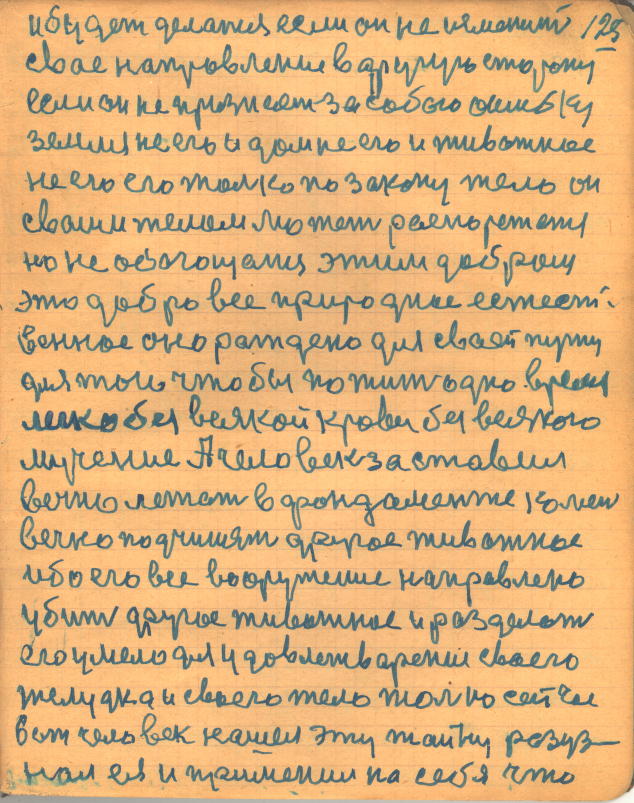 и будет делатся если он не изменит 125
свае направление в другую сторону
если он не признает за собою ошибку
земля не его и дом не его и животное
не его его толко по закону тело он
своим телом может распорежатся
но не обогощатся этим добром
это добро все природные естест-
венное оно раждено для сваей пути
для того чтобы пожит одно время
легко без всякой крови без всякого
мучение А человек заставил
вечно лежат в фондаменте камен
вечно подчинят другое животное
ибо его все вооружение направлено
убит другое животное и разделат
его умело для удовлетварение своего
желудка и своего тело толко сейчас
вот человек нашел эту тайну разуз-
нал ея и применил на себя что